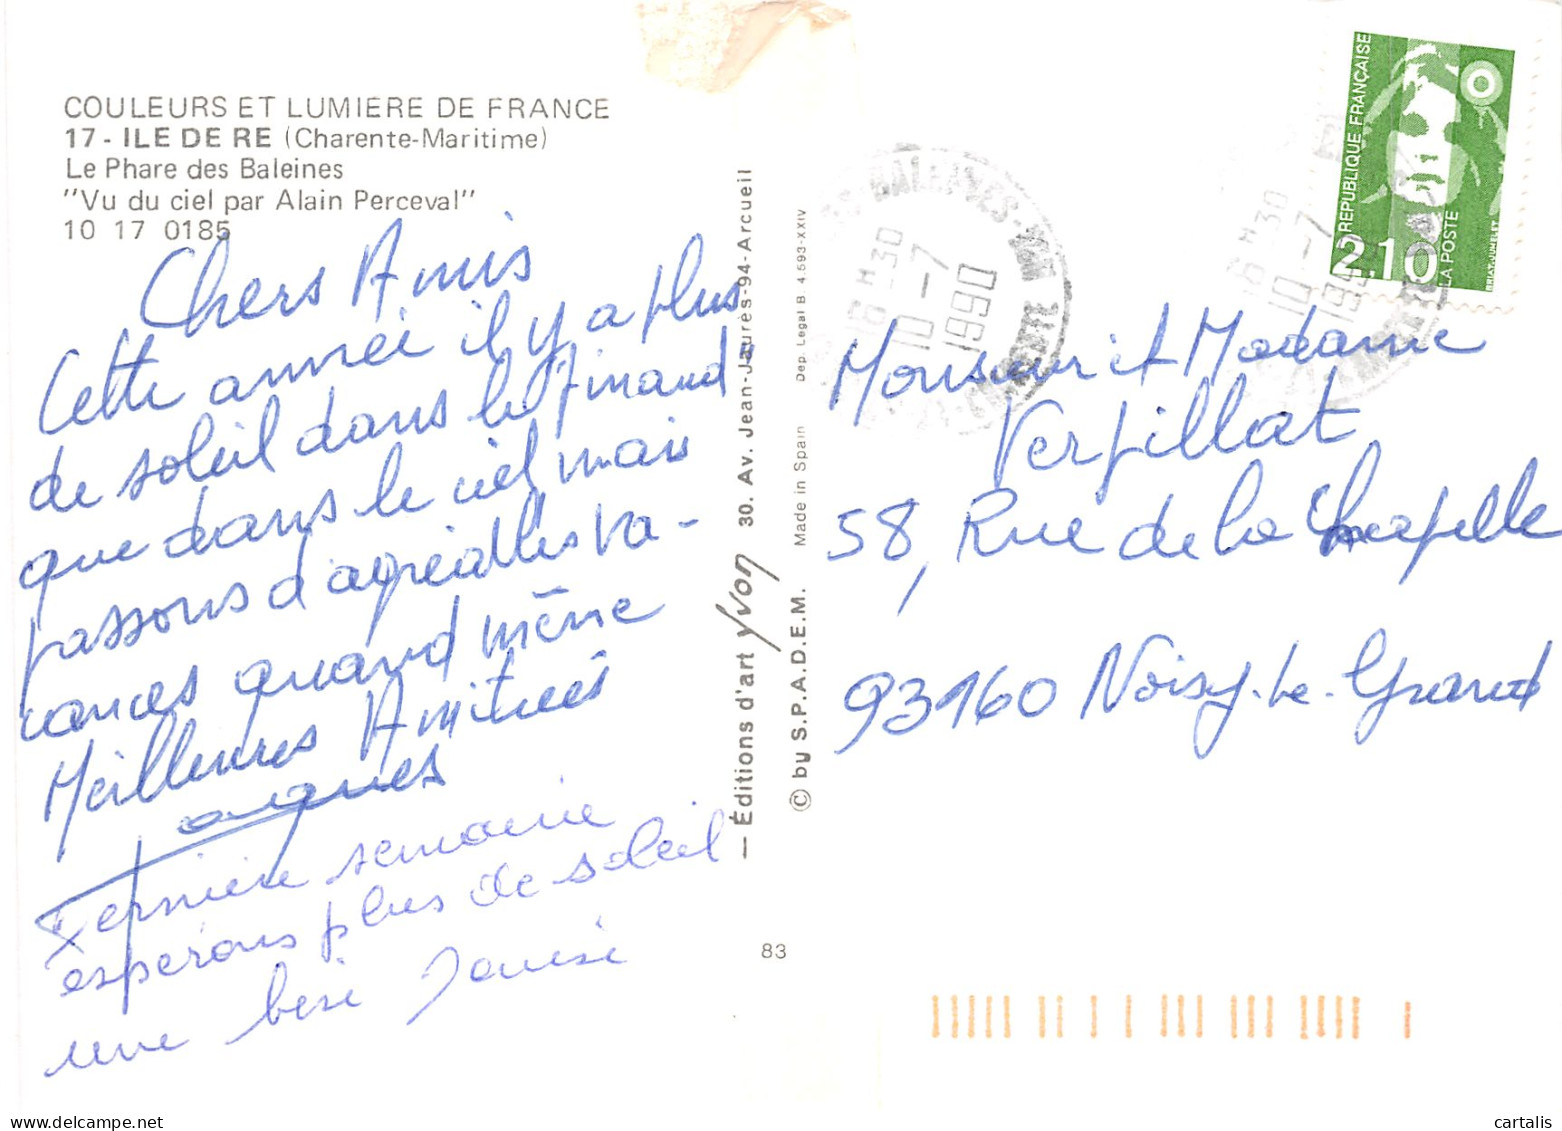 COULEURS ET LUMIERE DE FRANCE
17 - ILE DE RE (Charente-Maritime)
Le Phare des Baleines
"Vu du ciel par Alain Perceval"
10 17 0185
Chers Amis
Cette année il y a plus
de soleil dans le Pinaud
que dans le ciel mais
passons d'agréables va-
cances quand même
Meilleures Amitiés
Dernière semaine
espérons plus de soleil
une bise
— Éditions d'art Yvon 30. Av. Jean-Jaurès-94-Arcueil
© by S.P.A.D.E.M. Made in Spain Dep. Legal B. 4.593-XXIV
83
RÉPUBLIQUE FRANÇAISE
2,10
LA POSTE
BRIAT-JUMELET
BALEINES
16 H 30
10 -7
1990
16 H 30
10 -7
Monsieur et Madame
Verpillat
58, Rue de la Chapelle
93160 Noisy-Le-Grand
cartalis
delcampe.net